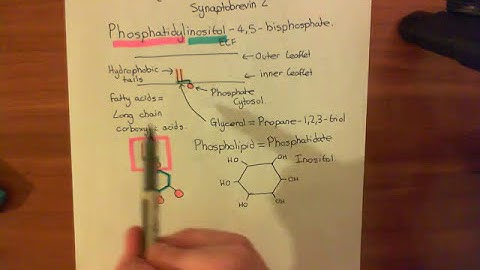 Synaptobrevin 2
Phosphatidylinositol-4,5-bisphosphate.
ECF
Outer Leaflet
Hydrophobic tails
inner Leaflet
Phosphate
Cytosol.
Fatty acids =
Long chain
carboxylic acids.
Glycerol = Propane-1,2,3-triol
Phospholipid = Phosphatidate
Inositol
HO
OH
HO
OH
HO
OH